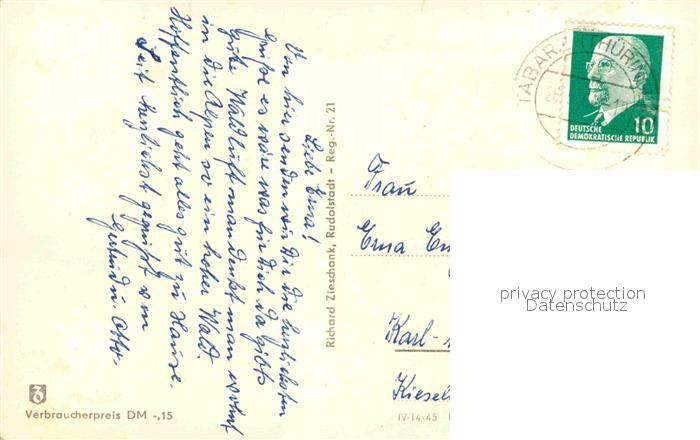 Liebe Erna!
Von hier senden wir Dir die herzlichsten
Grüße es wäre was für Dich da gibts
gute Waldluft man denkt man wohnt
in die Alpen so ein hoher Wald.
Hoffentlich geht alles gut zu Hause.
Seit herzlichst gegrüßt von
u. Otto.
Richard Zieschank, Rudolstadt – Reg.-Nr. 21
TABARZ (THÜRING
10
DEUTSCHE
DEMOKRATISCHE REPUBLIK
Frau
Erna
Karl-
Kiesel
privacy protection
Datenschutz
Verbraucherpreis DM -,15
IV-14-45